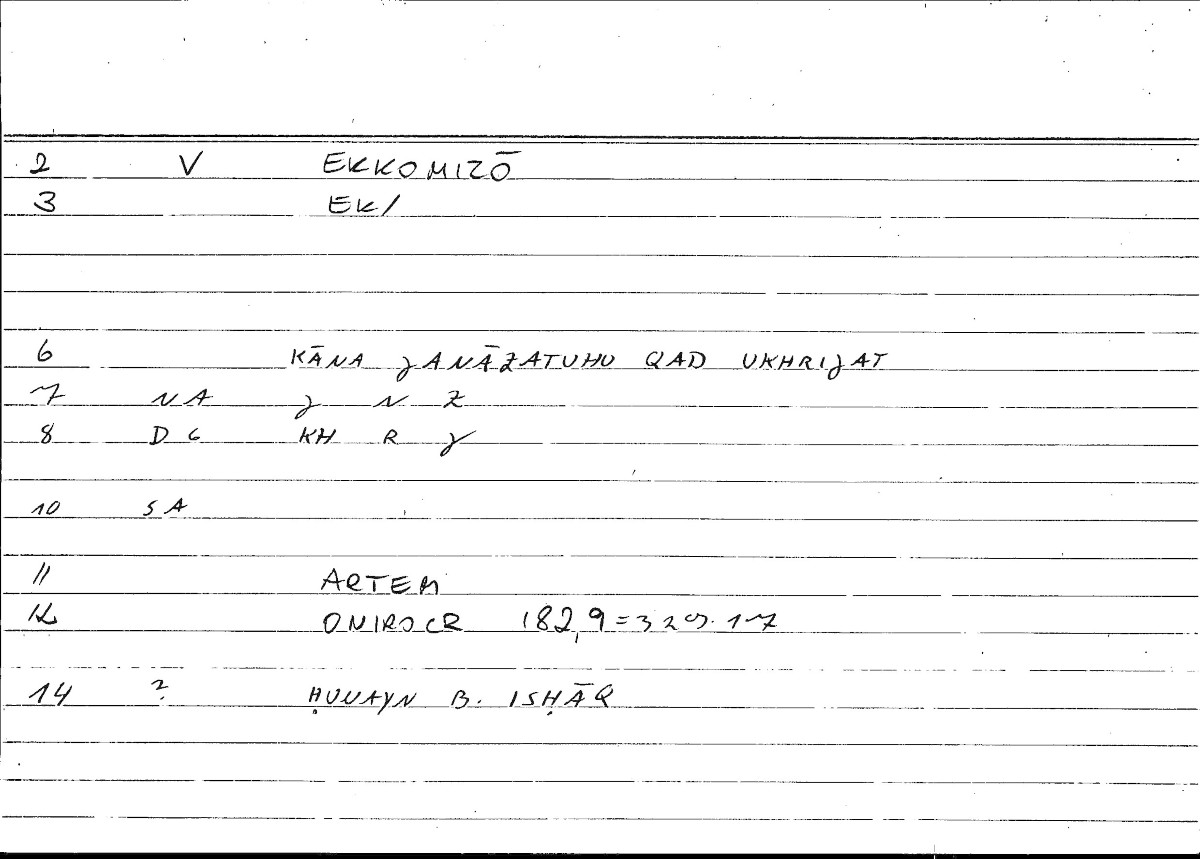 2 V EKKOMIZŌ
3 EK/
6 KĀNA JANĀZATUHU QAD UKHRIJAT
7 NA J N Z
8 DG KH R J
10 SA
11 ARTEM
12 ONIROCR 182,9=329.17
14 ? ḤUNAYN B. ISḤĀQ